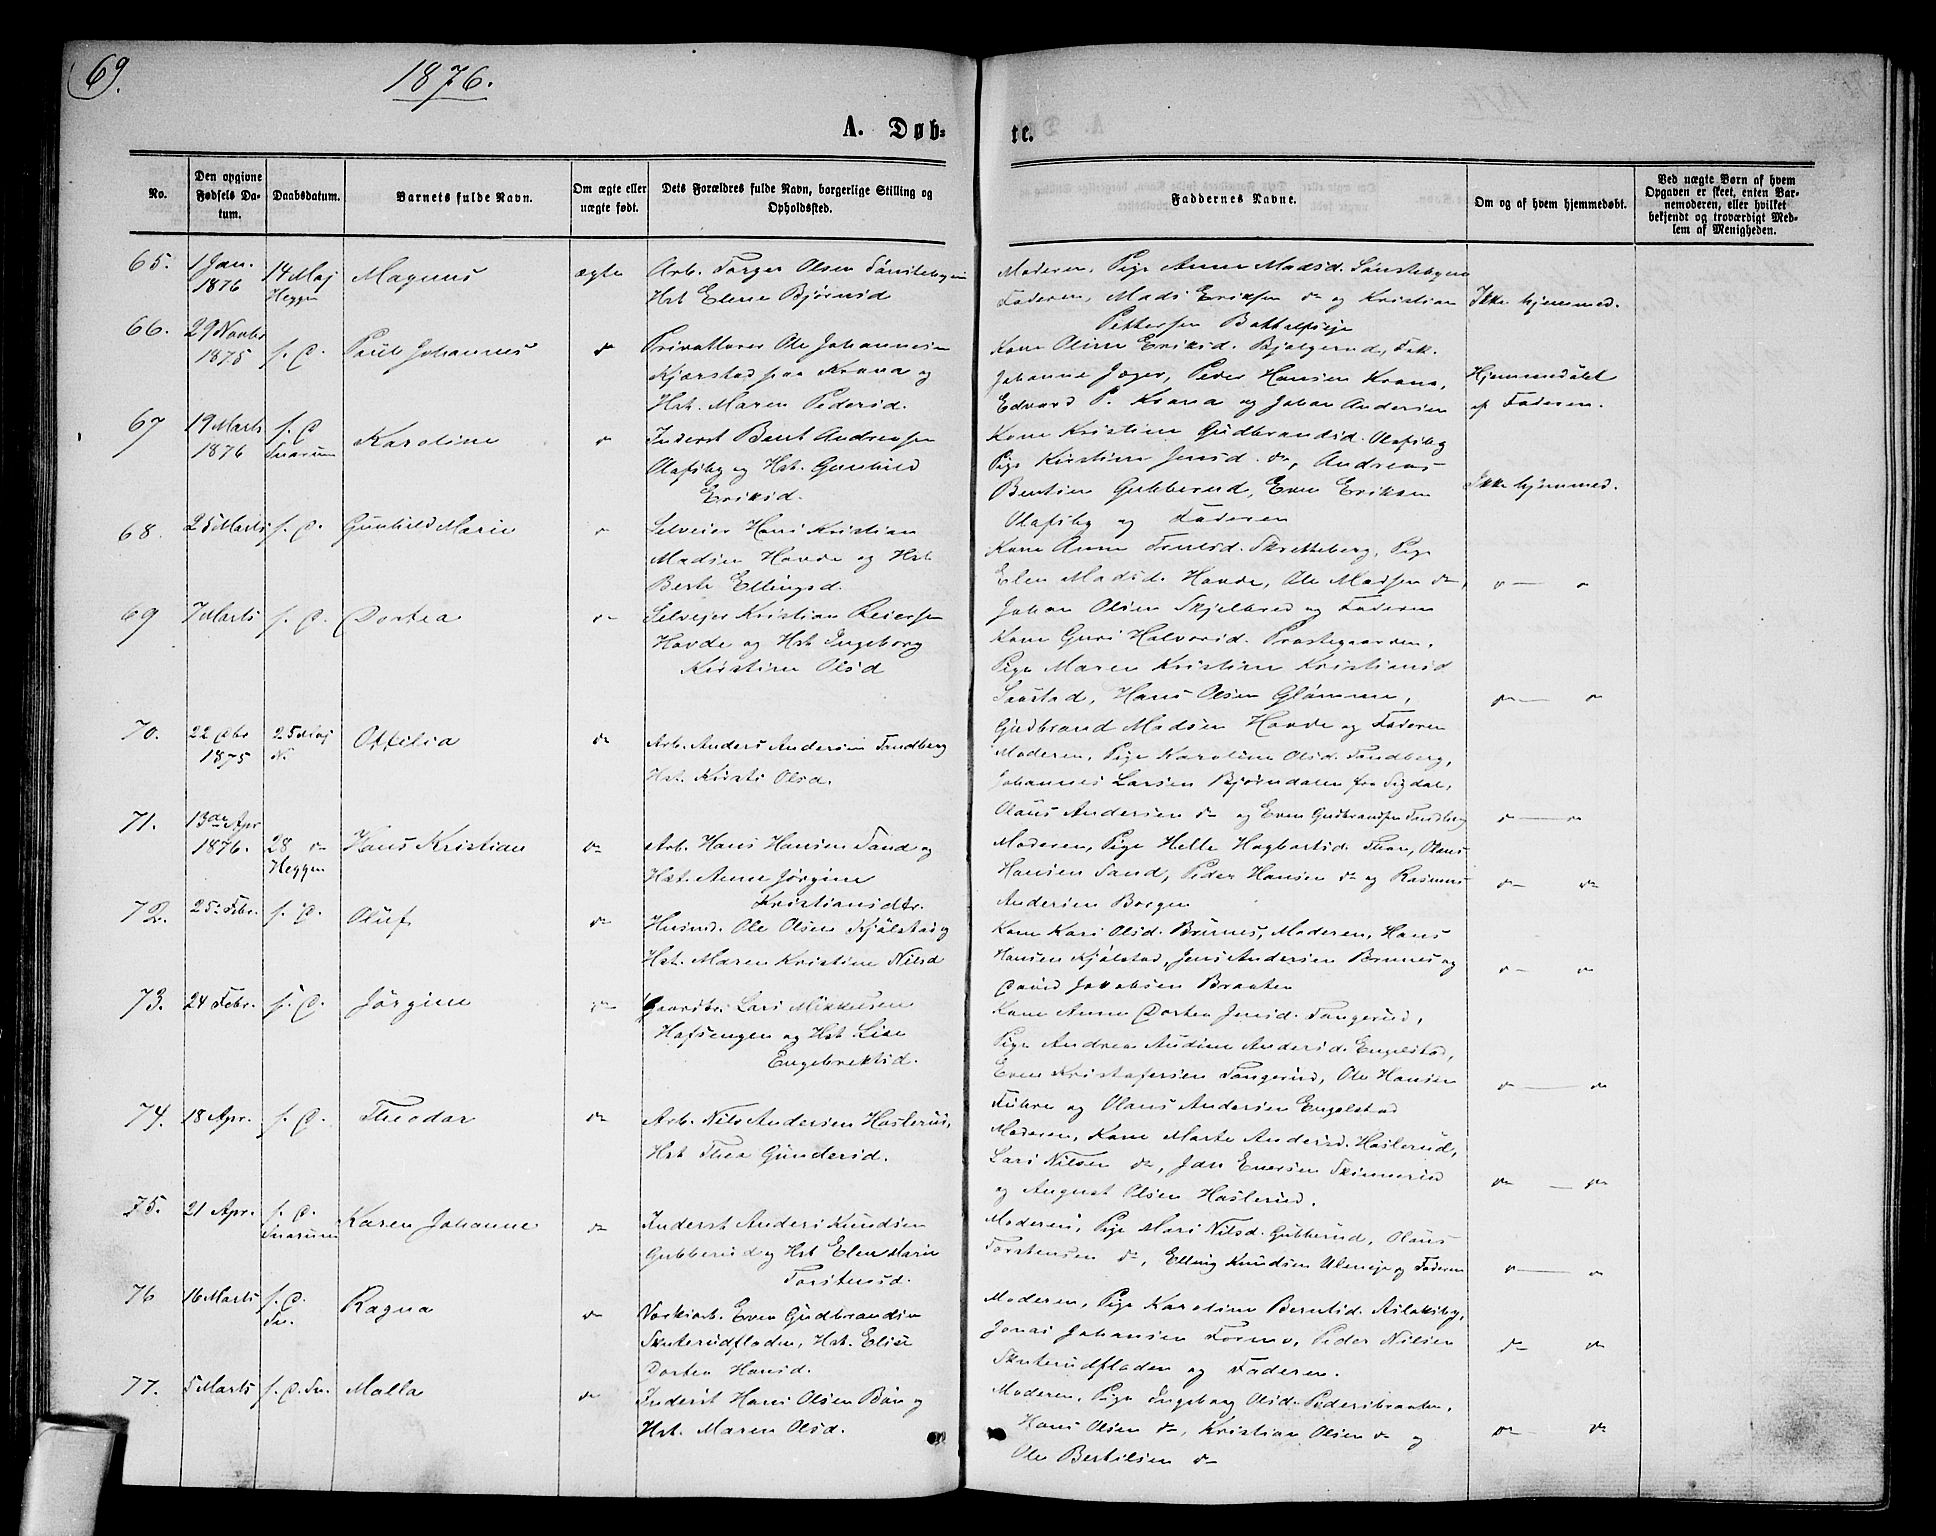 69.
1876.
A. Døb-
te.
No.
Den opgivne Fødsels Datum.
Daabsdatum.
Barnets fulde Navn.
Om ægte eller uægte født.
Dets Forældres fulde Navn, borgerlige Stilling og Opholdssted.
Faddernes Navne.
Om og af hvem hjemmedøbt.
Ved uægte Børn af hvem Opgaven er skeet, enten Barnemoderen, eller hvilket bekjendt og troværdigt Medlem af Menigheden.
65. 1 Jan. 1876 14 Maj Heggen Magnus ægte
Arb. Torger Olsen
Hst Elene Bjørnsd
Moderen, Pige Anne Madsd.
Faderen, Mads Eriksen do og Kristian
Pettersen
Ikke hjemmed.
66. 29 Novbr 1875 s. D. Paul Johannes do
Ole Johannesen
Kjærstad paa Krana og
Hst. Maren Pedersd.
Kone Oline Eriksd. Bjølgerud, Frk.
Johanne Jæger, Peder Hansen Krana,
Edvard P. Krana og Johan Andersen
Hjemmedøbt
af Faderen.
67 19 Marts 1876 s. D Snarum Karoline do
Inderst Bent Andreasen
Olafsby og Hst. Gunhild
Eriksd.
Kone Kristine Gudbrandsd. Olafsby
Pige Kirstine Jensd. do, Andreas
Bentsen Gubberud, Even Eriksen
Olafsby og Faderen
Ikke hjemmed.
68. 25 Marts s. D. Gunhild Marie do
Selveier Hans Kristian
Madsen Hovde og Hst.
Berte Ellingsd.
Kone Anne Skretteberg, Pige
Elen Madsd. Hovde, Ole Madsen do,
Johan Olsen Skjelbred og Faderen
do — do
69 7 Marts s. D. Dortea do
Selvejer Kristian Reiersen
Hovde og Hst Ingeborg
Kirstine Olsd
Kone Guri Halvorsd. Prostegaarden,
Pige Maren Kristine Kristiansd
Hans Olsen Glomme,
Gudbrand Madsen Hovde og Faderen
do — do
70. 22 Dbr 1875 25 Maj N. Ottilia do
Arb. Anders Andersen Sandberg
Hst. Kirsti Olsd.
Moderen, Pige Karoline Olsd. Sandberg,
Johannes Larsen Bjørndalen fra Sigdal,
Olaus Andersen do og Even Gudbrandsen Sandberg
do — do
71. 13de Apr 1876. 28 do Heggen Hans Kristian do
Arb. Hans Hansen Sand og
Hst. Anne Jørgine
Kristiansdtr.
Moderen, Pige Helle Hagbartsd. Thon, Olaus
Hansen Sand, Peder Hansen do og Rasmus
Andersen Borgen
do — do
72. 25 Febr. s. D. Oluf do
Husmd. Ole Olsen Kjølstad og
Hst. Maren Kristine Nilsd
Kone Kari Olsd. Brunes, Moderen, Hans
Hansen Kjølstad, Jens Andersen Brunes og
David Jakobsen Braaten
do — do
73. 24 Febr. s. D. Jørgine do
Gaardbr. Lars Mikkelsen
Hafsengen og Hst Lise
Engebrektsd.
Kone Anne Dortea Jensd. Tangerud,
Pige Andrea Audine Andersd. Engelstad,
Even Kristofersen Tangerud, Ole Hansen
og Olaus Andersen Engelstad
do — do
74. 18 Apr. s. D. Theodor do
Arb. Nils Andersen Haslerud,
Hst Thea Gundersd.
Moderen, Kone Marte Andersd. Haslerud,
Lars Nilsen do, Jan Eversen
og August Olsen Haslerud.
do — do
75. 21 Apr. s. D. Snarum Karen Johanne do
Inderst Anders Knudsen
Gubberud og Hst Elen Marie
Torstensd.
Moderen, Pige Mari Nilsd. Gubberud, Olaus
Torstensen do, Elling Knudsen og Faderen
do — do
76 16 Marts s. D. Sn. Ragna do
Even Gudbrandsen
Skuterudfladen, Hst. Elise
Dortea Hansd.
Moderen, Pige Karoline Berntsd. Aslaksby,
Jonas Johansen Formo, Peder Nilsen
Skuterudfladen og Faderen.
do — do
77. 5 Marts s. D. Sn. Malla do
Inderst Hans Olsen Bøn og
Hst. Maren Olsd.
Moderen, Pige Ingeborg Olsd. Pedersbraaten,
Hans Olsen do, Kristian Olsen do og
Ole Bertilsen do
do — do